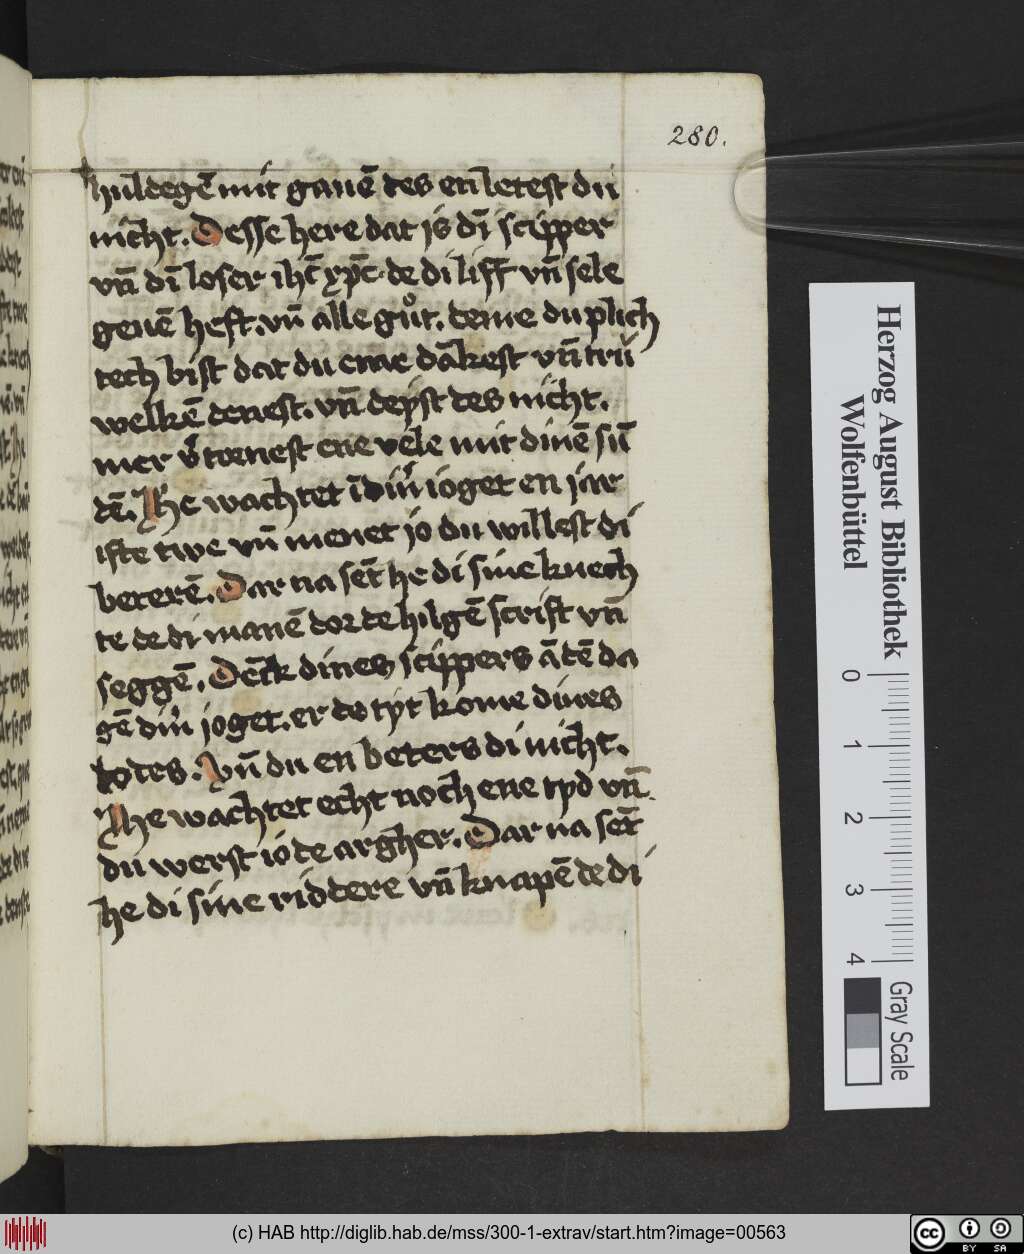 280.
huldegē mit gauē des en letest du
nicht. Desse here dat is dī scipper
vn̄ dī loser ihc̄ xp̄c. de di liff vn̄ sele
geuē heft. vn̄ alle guͦt. deme du plich
tech bist dat du eme dākest vn̄ trū
welkē denest. vn̄ deyst des nicht.
mer v̾tornest ene vele mit dinē sū
dē. He wachtet ī din̾ ioget en jar
ifte twe vn̄ menet jo du willest di
beterē. Dar na sēt he di sine knech
te de di manē dor de hilgē scrift vn̄
seggē. Dēck dines scippers ā dē da
gē din̾ joget. er de tyt kome dines
dodes. Vn̄ du en beters di nicht.
He wachtet echt noch ene tyd vn̄
du werst io de argher. Dar na sēt
he di sine riddere vn̄ knapē de di
Herzog August Bibliothek
Wolfenbüttel
0 1 2 3 4
Gray Scale
(c) HAB http://diglib.hab.de/mss/300-1-extrav/start.htm?image=00563
CC BY SA